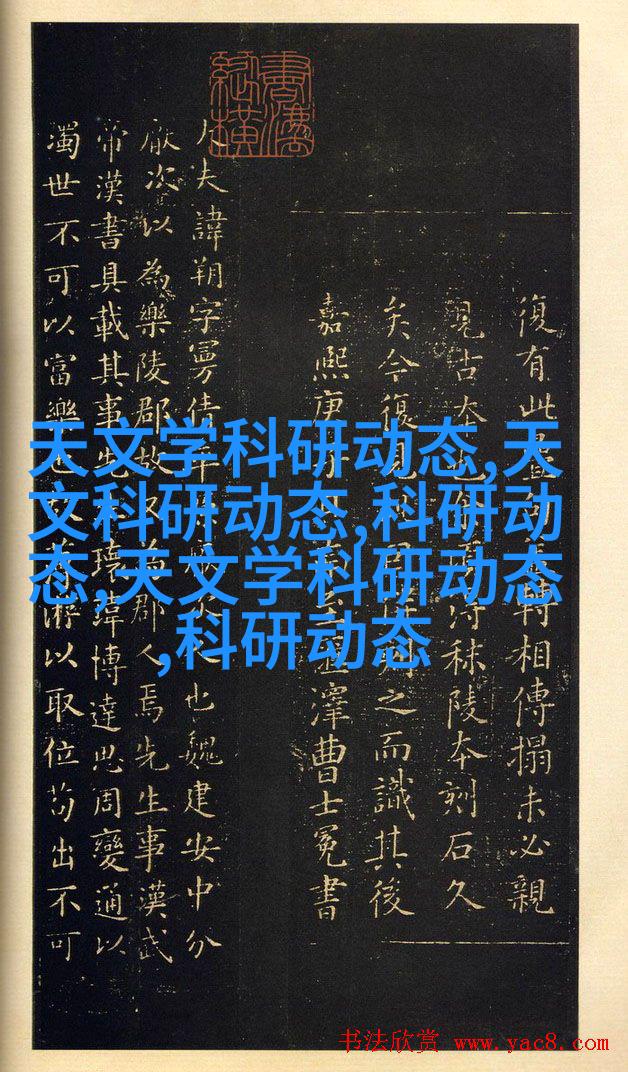 天文学科研动态,天
文科研动态,科研动
态,天文学科研动态
,科研动态
復有此 轉相傳搨未必親
見古本也 秣陵本刻石久
矣今復見 之而識其後
嘉熙庚 澤曹士冕書
大夫諱朔字曼倩平 也魏建安中分
厭次以為樂陵郡故又為郡人焉先生事漢武
帝漢書具載其事先生瓌瑋博達思周變通以
濁世不可以富樂也 以取位苟出不可
书法欣赏 www.yac8.com